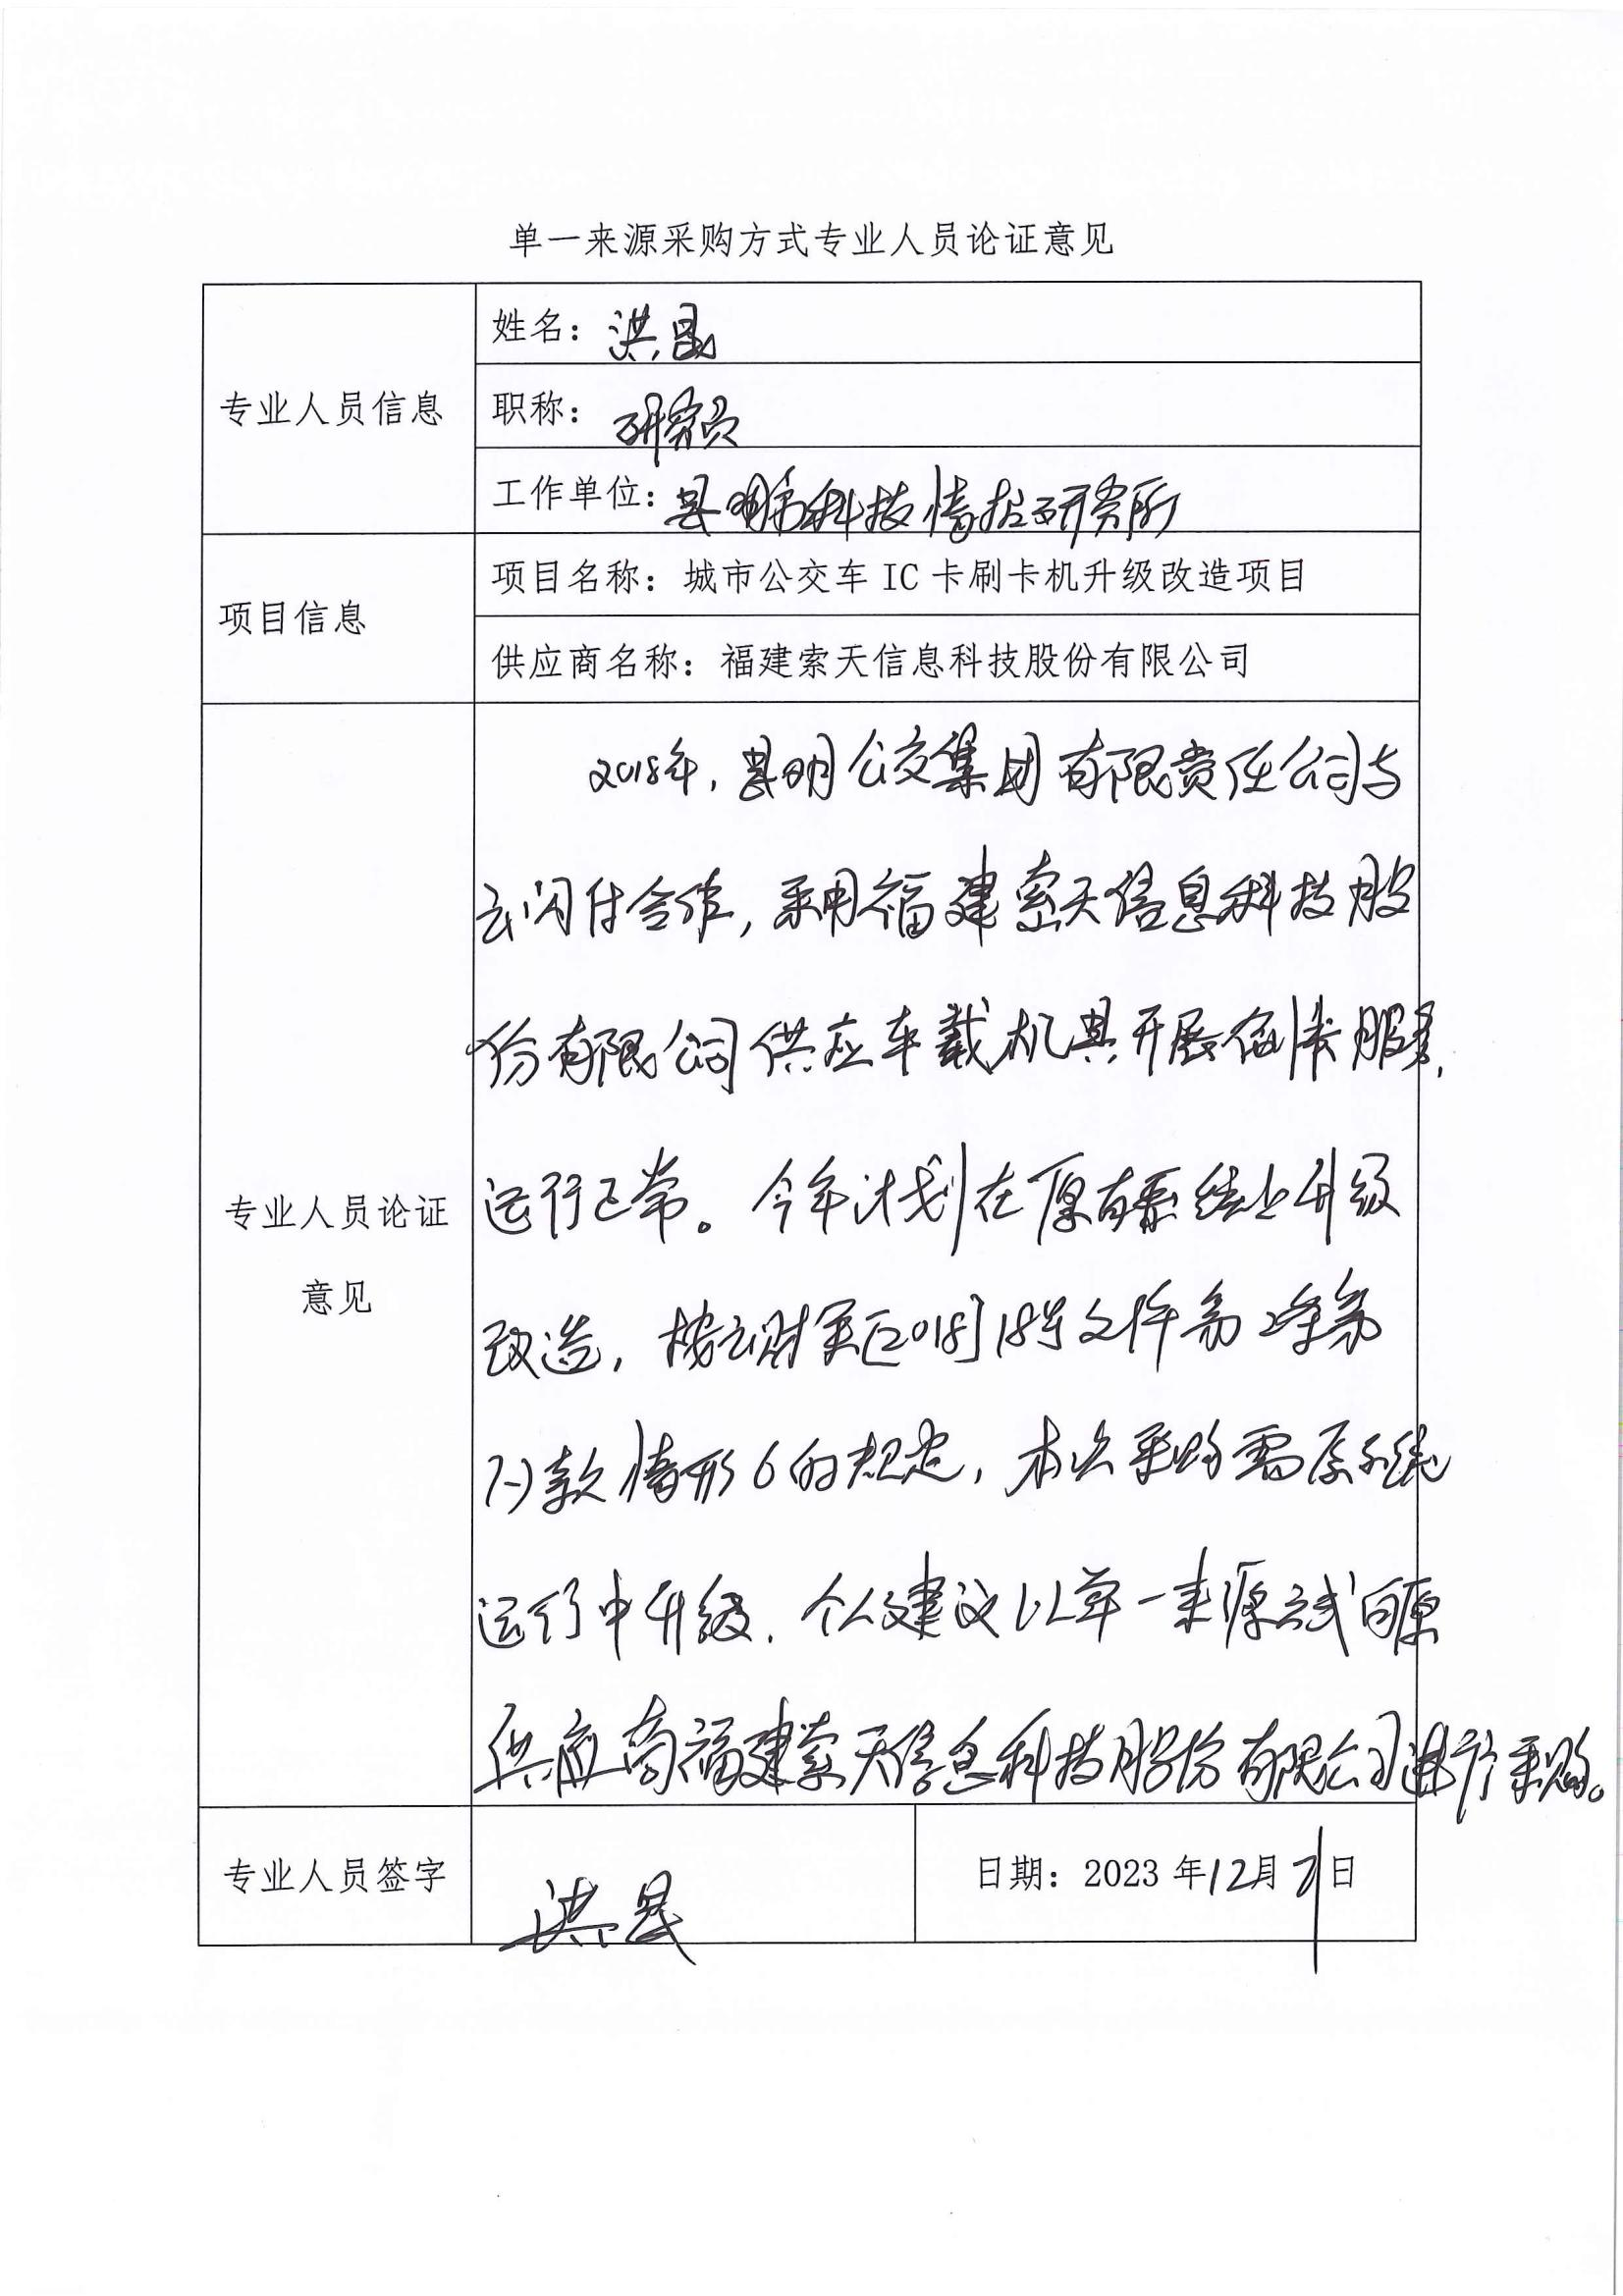 单一来源采购方式专业人员论证意见
专业人员信息
姓名：洪昆
职称：研究员
工作单位：昆明市科技情报研究所
项目信息
项目名称：城市公交车 IC 卡刷卡机升级改造项目
供应商名称：福建索天信息科技股份有限公司
专业人员论证
意见
2018年，昆明公交集团有限责任公司与
云闪付合作，采用福建索天信息科技股
份有限公司供应车载机具开展刷卡服务，
运行正常。今年计划在原有系统上升级
改造，按云财采[2018]18号文件第2条第
(一)款情形6的规定，本次采购需原系统
运行中升级．个人建议以单一来源方式向原
供应商福建索天信息科技股份有限公司进行采购。
专业人员签字
洪昆
日期：2023 年12月 日